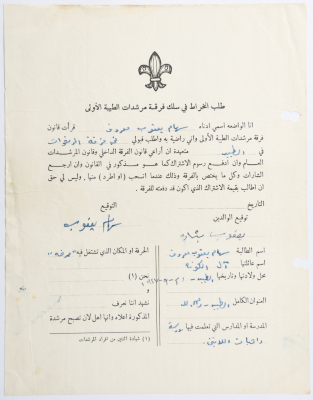 طلب انخراط في سلك فرقة مرشدات الطيبة الأولى
انا الواضعه اسمي ادناه سهام يعقوب معروف قرأت قانون
فرقة مرشدات الطيبة الأولى وانني راضية به واطلب قبولي في فرقة المرشدات
في الطيبة متعهدة ان أراعي قانون الفرقة الداخلي وقانون المرشدات
العام وان ادفع رسوم الاشتراك كما هو مذكور في القانون وان ارجع
الشارات وكل ما يختص بالفرقة وذلك عندما انسحب (او اطرد) منها، وليس لي حق
ان اطالب بقيمة الاشتراك الذي اكون قد دفعته للفرقة.
التاريخ
التوقيع
توقيع الوالدين
سهام يعقوب
يعقوب
اسم الطالبة سهام يعقوب معروف
اسم عائلتها آل
محل ولادتها وتاريخها الطيبة
العنوان الكامل الطيبة - رام الله
المدرسة او المدارس التي تعلمت فيها مدرسة
اللاتين
الحرفة او المكان الذي تشتغل فيه
نحن (١)
و
نشهد اننا نعرف
المذكورة اعلاه وانها اهل لان تصبح مرشدة
(١) شهادة اثنتين من افراد المرشدات